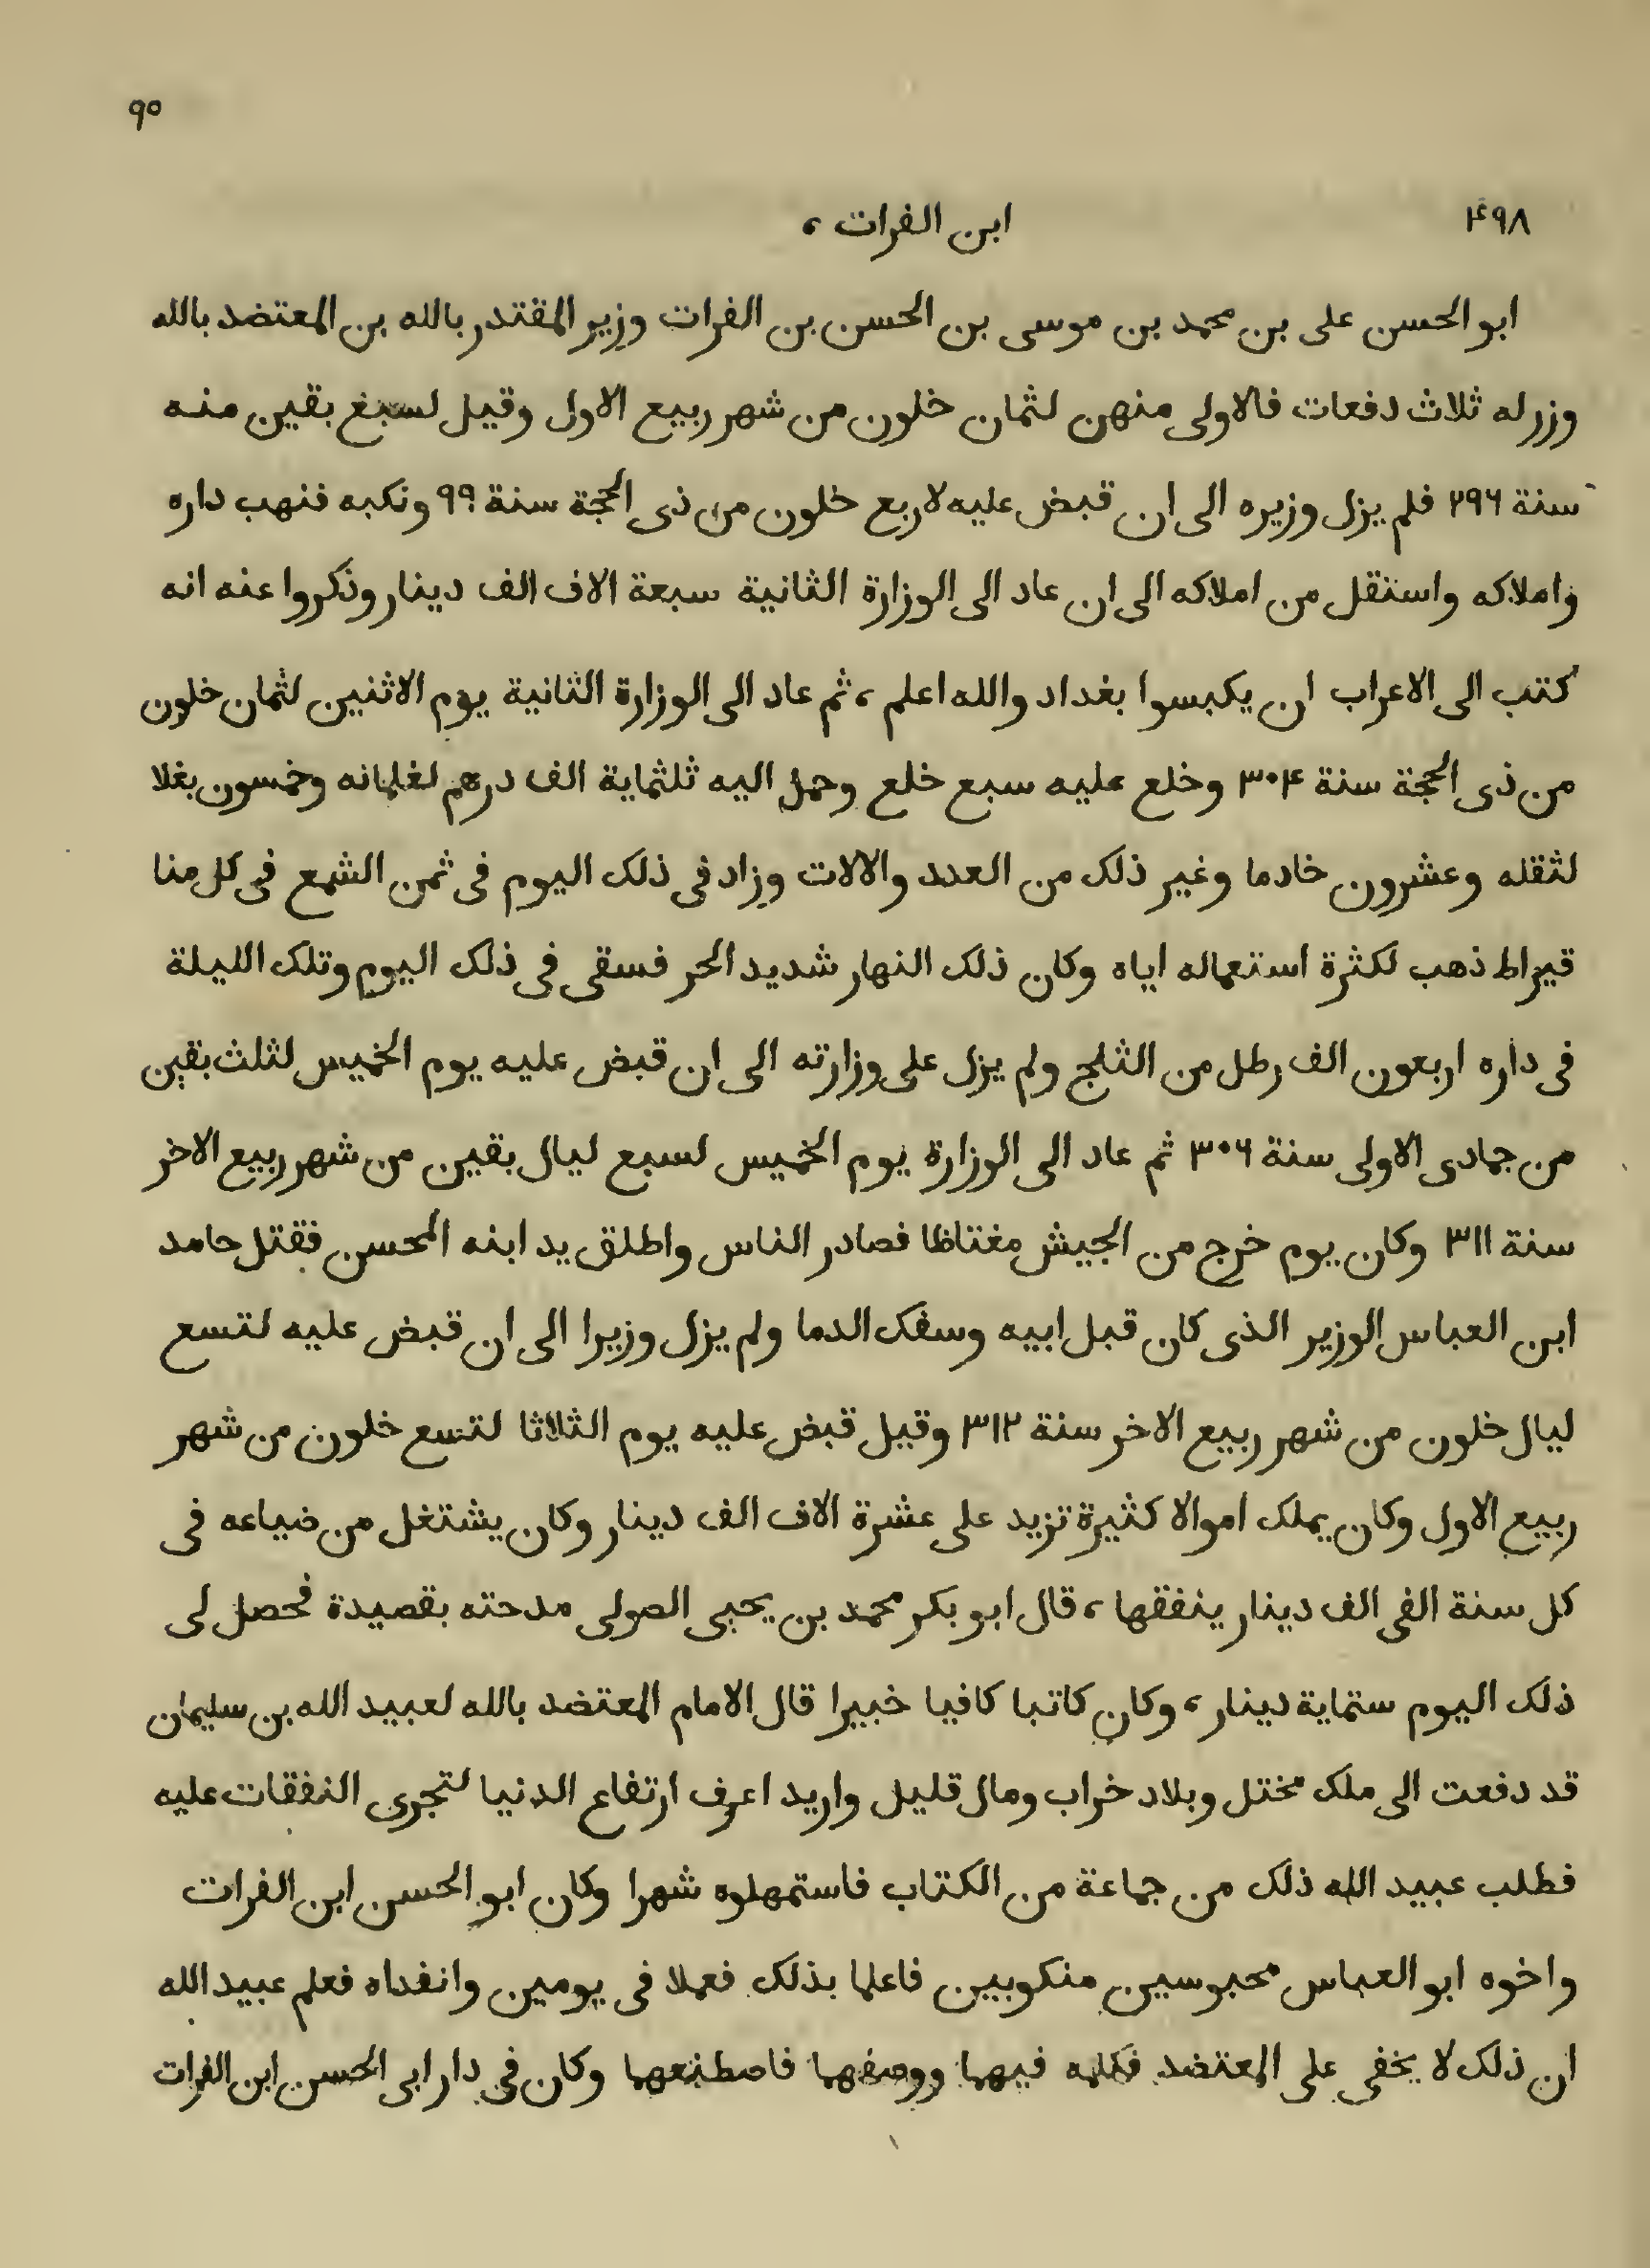 ٩٥
٤٩٨ ابن الفرات ،
ابو الحسن على بن محمد بن موسى بن الحسن بن الفرات وزير المقتدر بالله بن المعتضد بالله
وزر له ثلاث دفعات فالاولى منهن لثمان خلون من شهر ربيع الاول وقيل لسبغ بقين منه
سنة ٢٩٦ فلم يزل وزيره الى ان قبض عليه لاربع خلون من ذى الحجة سنة ٩٩ ونكبه فنهب داره
واملاكه واستقل من املاكه الى ان عاد الى الوزارة الثانية سبعة الاف الف دينار وذكروا عنه انه
كتب الى الاعراب ان يكبسوا بغداد والله اعلم ، ثم عاد الى الوزارة الثانية يوم الاثنين لثمان خلون
من ذى الحجة سنة ٣٠٤ وخلع عليه سبع خلع وحمل اليه ثلثماية الف درهم لغلمانه وخمسون بغلا
لثقله وعشرون خادما وغير ذلك من العدد والالات وزاد فى ذلك اليوم فى ثمن الشمع فى كل منا
قيراط ذهب لكثرة استعماله اياه وكان ذلك النهار شديد الحر فسقى فى ذلك اليوم وتلك الليلة
فى داره اربعون الف رطل من الثلج ولم يزل على وزارته الى ان قبض عليه يوم الخميس لثلث بقين
من جمادى الاولى سنة ٣٠٦ ثم عاد الى الوزارة يوم الخميس لسبع ليال بقين من شهر ربيع الاخر
سنة ٣١١ وكان يوم خرج من الجيش مغتاظا فصادر الناس واطلق يد ابنه المحسن فقتل حامد
ابن العباس الوزير الذى كان قبل ابيه وسفك الدما ولم يزل وزيرا الى ان قبض عليه لتسع
ليال خلون من شهر ربيع الاخر سنة ٣١٢ وقيل قبض عليه يوم الثلاثا لتسع خلون من شهر
ربيع الاول وكان يملك اموالا كثيرة تزيد على عشرة الاف الف دينار وكان يشتغل من ضياعه فى
كل سنة الفى الف دينار ينفقها ، قال ابو بكر محمد بن يحيى الصولى مدحته بقصيدة فحصل لى
ذلك اليوم ستماية دينار ، وكان كاتبا كافيا خبيرا قال الامام المعتضد بالله لعبيد الله بن سليمان
قد دفعت الى ملك مختل وبلاد خراب ومال قليل واريد اعرف ارتفاع الدنيا لتجرى النفقات عليه
فطلب عبيد الله ذلك من جماعة من الكتاب فاستمهلوه شهرا وكان ابو الحسن ابن الفرات
واخوه ابو العباس محبوسين منكوبين فاعلما بذلك فعملا فى يومين وانفداه فعلم عبيد الله
ان ذلك لا يخفى على المعتضد فكلمه فيهما ووصفهما فاصطنعهما وكان فى دار ابى الحسن ابن الفرات